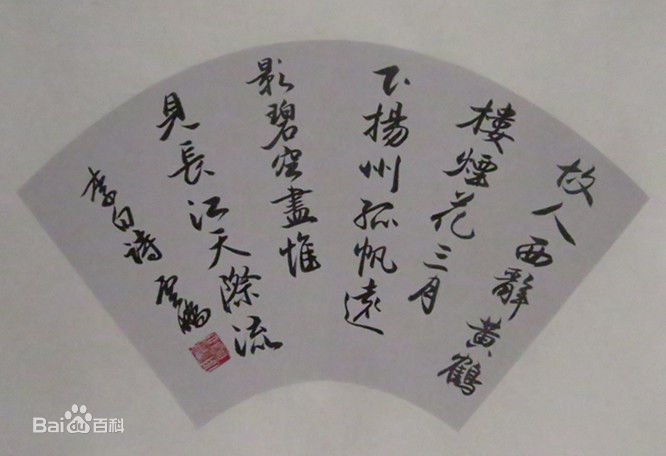 故人西辭黃鶴
樓煙花三月
下揚州孤帆遠
影碧空盡惟
見長江天際流
李白詩
Bai du 百科